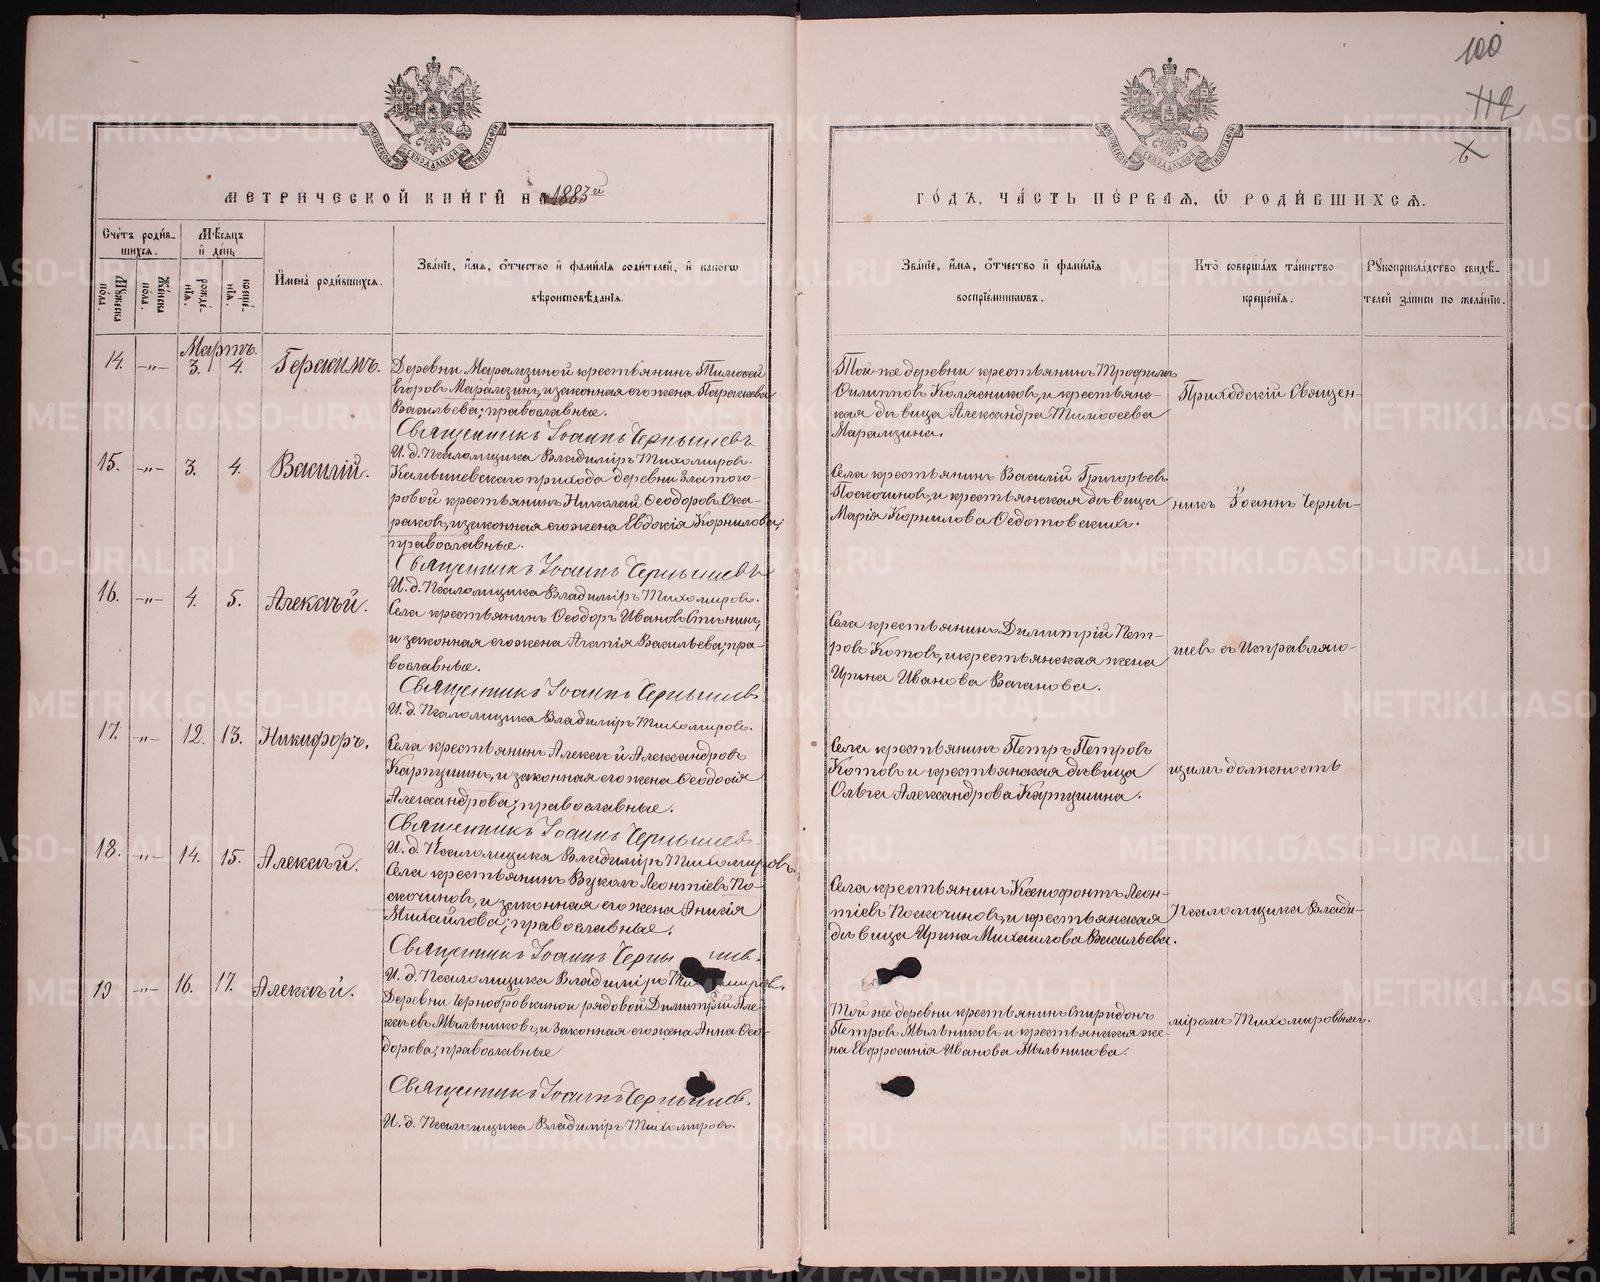 100
112
МЕТРИЧЕСКОЙ КНИГИ НА 1883й
ГОДЪ, ЧАСТЬ ПЕРВАЯ, Ѡ РОДИВШИХСЯ.
Счетъ родившихся.
Мужеска пола.
Женска пола.
Мѣсяцъ и день
рожденія.
крещенія.
Имена родившихся.
Званіе, имя, отчество и фамилія родителей, и какогѡ
вѣроисповѣданія.
Званіе, имя, отчество и фамилія
воспріемникѡвъ.
Кто совершалъ таинство
крещенія.
Рукоприкладство свидѣ-
телей записи по желанію.
Мартъ.
14. -"- 3. 4. Герасимъ.
Деревни Марамзиной крестьянинъ Тимоѳей
Егоровъ Марамзинъ, и законная его жена Параскева
Васильева; православные.
Священникъ Іоаннъ Чернышевъ
И. д. Псаломщика Владиміръ Тихомировъ.
Той-же деревни крестьянинъ Трофимъ
Филипповъ Колясниковъ, и крестьянс-
кая дѣвица Александра Тимоѳеева
Марамзина.
15. -"- 3. 4. Василій.
Камышевскаго прихода деревни Златого-
ровой крестьянинъ Николай Ѳеодоровъ Ска-
раковъ, и законная его жена Евдокія Корнилова;
православные.
Священникъ Іоаннъ Чернышевъ
И. д. Псаломщика Владиміръ Тихомировъ.
Села крестьянинъ Василій Григорьевъ
Поскочиновъ, и крестьянская дѣвица
Марія Корнилова Ѳедотовскихъ.
16. -"- 4. 5. Алексѣй.
Села крестьянинъ Ѳеодоръ Ивановъ Стининъ,
и законная его жена Агапія Васильева; пра-
вославные.
Священникъ Іоаннъ Чернышевъ
И. д. Псаломщика Владиміръ Тихомировъ.
Села крестьянинъ Димитрій Пет-
ровъ Котовъ, и крестьянская жена
Ирина Иванова Ваганова.
17. -"- 12. 13. Никифоръ.
Села крестьянинъ Алексѣй Александровъ
Карпушинъ, и законная его жена Ѳеодосія
Александрова; православные.
Священникъ Іоаннъ Чернышевъ
И. д. Псаломщика Владиміръ Тихомировъ.
Села крестьянинъ Петръ Петровъ
Котовъ и крестьянская дѣвица
Ольга Александрова Карпушина.
18. -"- 14. 15. Алексѣй.
Села крестьянинъ Вуколъ Леонтіевъ По-
скочиновъ, и законная его жена Анисія
Михайлова; православные.
Священникъ Іоаннъ Черны шев.
И. д. Псаломщика Владиміръ Тихомировъ.
Села крестьянинъ Ксенофонтъ Леон-
тіевъ Поскочиновъ, и крестьянская
дѣвица Ирина Михаилова Васильева.
19 -"- 16. 17. Алексѣй.
Деревни Чернобровкиной рядовой Димитрій Але-
ксѣевъ Мыльниковъ, и законная его жена Анна Ѳео-
дорова; православные
Священникъ Іоаннъ Чернышев.
И. д. Псаломщика Владиміръ Тихомировъ.
Той же деревни крестьянинъ Спиридонъ
Петровъ Мыльниковъ и крестьянская же-
на Евфросинія Иванова Мыльникова.
Приходскій Священ-
никъ Іоаннъ Черны-
шевъ съ Исправляю-
щимъ должность
Псаломщика Влади-
міромъ Тихомировымъ.
METRIKI.GASO-URAL.RU